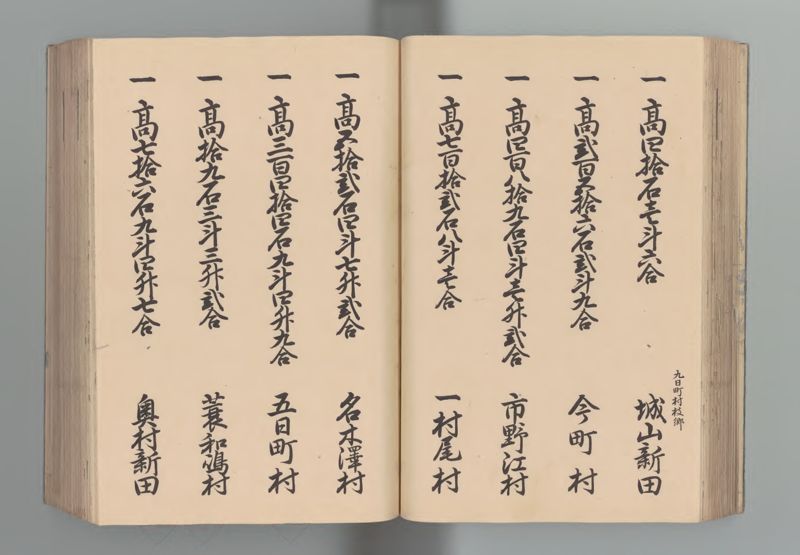 一 高四拾石壱斗六合 九日町村枝郷 城山新田
一 高弐百五拾六石弐斗九合 今町村
一 高四百八拾九石四斗壱升弐合 市野江村
一 高七百拾弐石八斗壱合 一村尾村
一 高五拾弐石四斗七升弐合 名木澤村
一 高三百四拾四石九斗四升九合 五日町村
一 高拾九石三斗三升弐合 蓑和嶋村
一 高七拾六石九斗四升七合 奥村新田